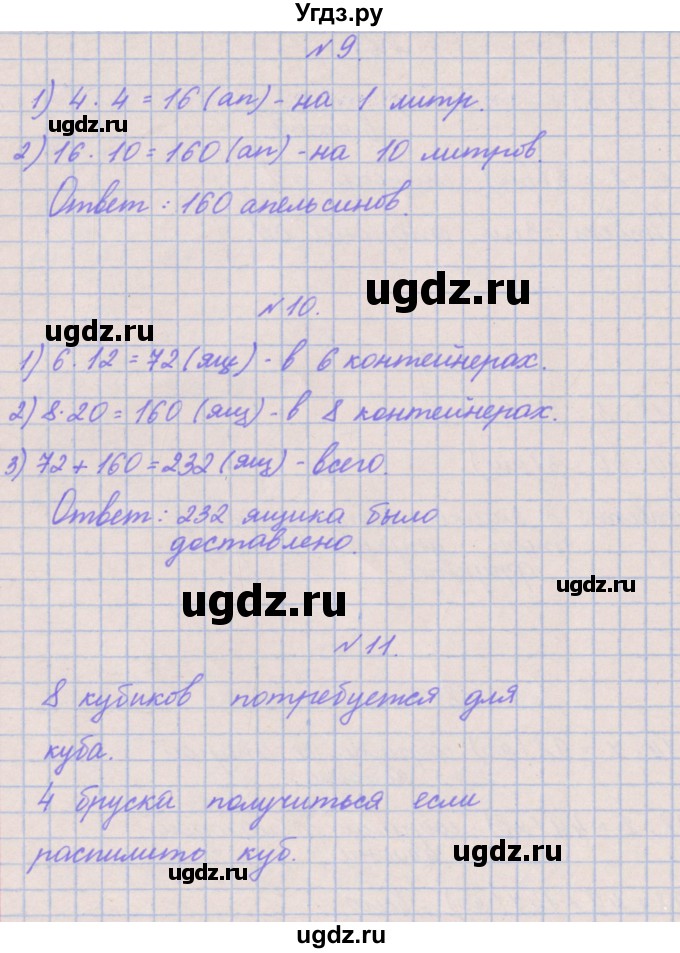 Угдз.ру
№ 9.
1) 4 · 4 = 16 (ап) - на 1 литр.
ugdz.ru
2) 16 · 10 = 160 (ап) - на 10 литров.
Ответ : 160 апельсинов.
ugdz.ru
№ 10.
ugdz.ru
1) 6 · 12 = 72 (ящ) - в 6 контейнерах.
2) 8 · 20 = 160 (ящ) - в 8 контейнерах.
3) 72 + 160 = 232 (ящ) - всего.
Ответ : 232 ящика было
доставлено.
ugdz.ru
ugdz.ru
№ 11.
8 кубиков потребуется для
куба.
4 бруска получиться если
распилить куб.
ugdz.ru
ugdz.ru
ugdz.ru